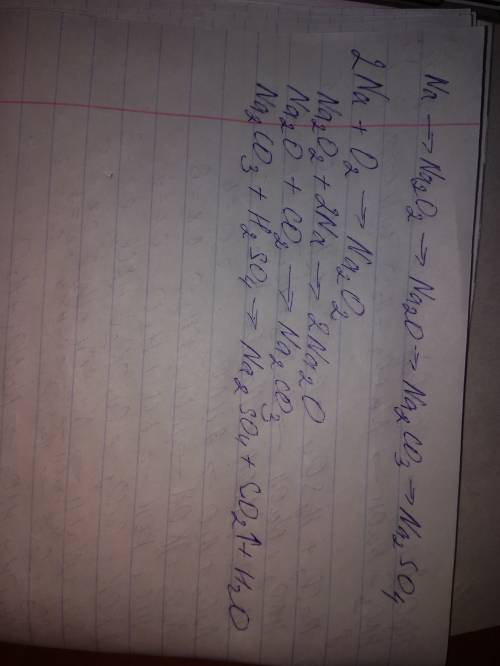 Na → Na₂O₂ → Na₂O → Na₂CO₃ → Na₂SO₄
2Na + O₂ → Na₂O₂
Na₂O₂ + 2Na → 2Na₂O
Na₂O + CO₂ → Na₂CO₃
Na₂CO₃ + H₂SO₄ → Na₂SO₄ + CO₂↑ + H₂O